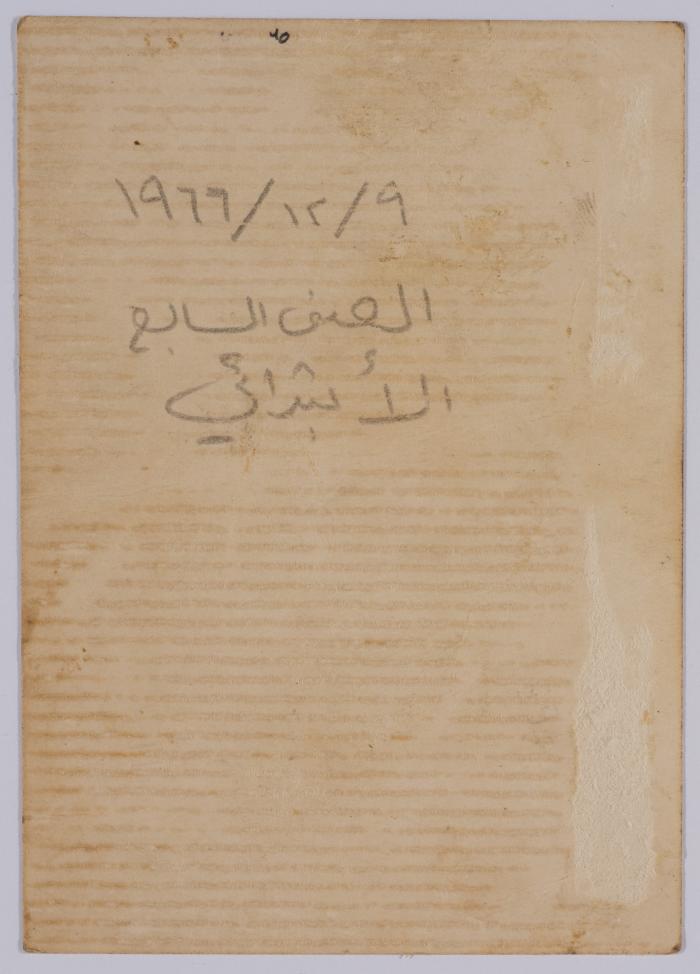 ١٩٦٦/١٢/٩
الصف السابع
الأبتدائي